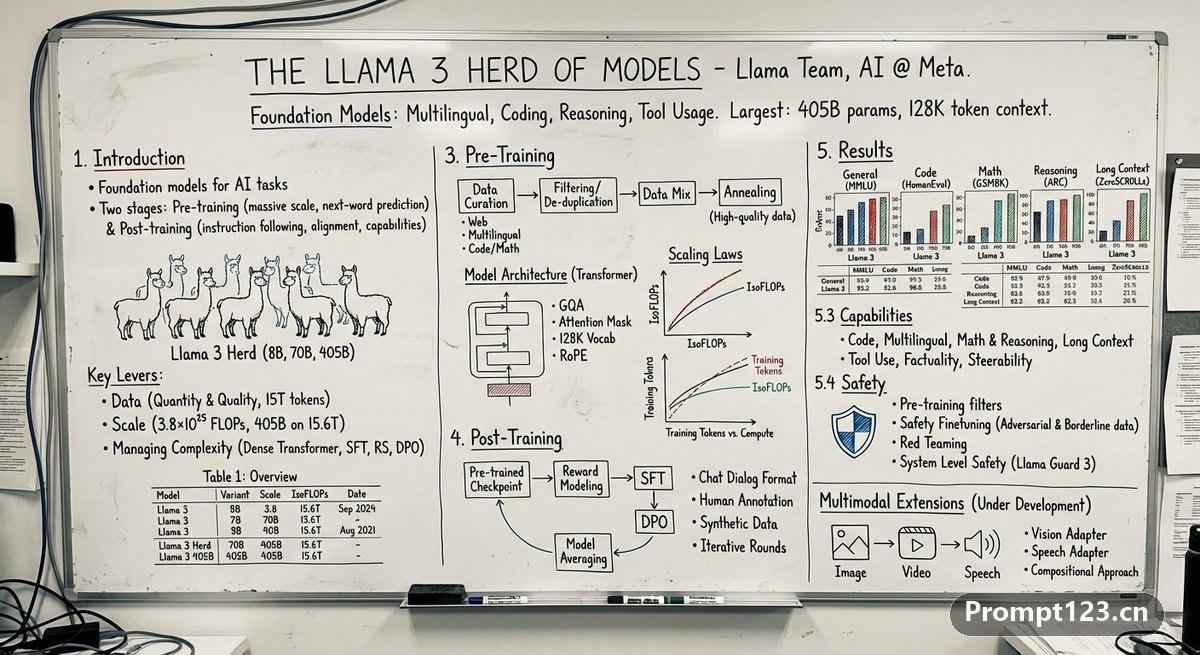 THE LLAMA 3 HERD OF MODELS – Llama Team, AI @ Meta.
Foundation Models: Multilingual, Coding, Reasoning, Tool Usage. Largest: 405B params, 128K token context.
1. Introduction
• Foundation models for AI tasks
• Two stages: Pre-training (massive scale, next-word prediction)
& Post-training (instruction following, alignment, capabilities)
Llama 3 Herd (8B, 70B, 405B)
Key Levers:
• Data (Quantity & Quality, 15T tokens)
• Scale (3.8×10²⁵ FLOPs, 405B on 15.6T)
• Managing Complexity (Dense Transformer, SFT, RS, DPO)
Table 1: Overview
Model Variant Scale IsoFLOPs Date
Llama 3 8B 3.8 15.6T Sep 2024
Llama 3 7B 70B 15.6T –
Llama 3 9B 40B 15.6T Aug 2021
Llama 3 Herd 70B 405B 15.6T –
Llama 3 405B 405B 405B 15.6T –
3. Pre-Training
Data Curation
Filtering/ De-duplication
Data Mix
Annealing
(High-quality data)
• Web
• Multilingual
• Code/Math
Model Architecture (Transformer)
• GQA
• Attention Mask
• 128K Vocab
• RoPE
Scaling Laws
IsoFLOPs
IsoFLOPs
IsoFLOPs
Training Tokens
IsoFLOPs
Training Tokens vs. Compute
4. Post-Training
Pre-trained Checkpoint
Reward Modeling
SFT
DPO
Model Averaging
• Chat Dialog Format
• Human Annotation
• Synthetic Data
• Iterative Rounds
5. Results
General (MMLU)
Code (HumanEval)
Math (GSM8K)
Reasoning (ARC)
Long Context (ZeroSCROLLs)
Llama 3
Llama 3
Llama 3
Llama 3
Llama 3
MMLU Code Math
General
Llama 3
MMLU Code Math
Code
Code
Reasoning
Long Context
5.3 Capabilities
• Code, Multilingual, Math & Reasoning, Long Context
• Tool Use, Factuality, Steerability
5.4 Safety
• Pre-training filters
• Safety Finetuning (Adversarial & Borderline data)
• Red Teaming
• System Level Safety (Llama Guard 3)
Multimodal Extensions (Under Development)
Image
Video
Speech
• Vision Adapter
• Speech Adapter
• Compositional Approach
Prompt123.cn